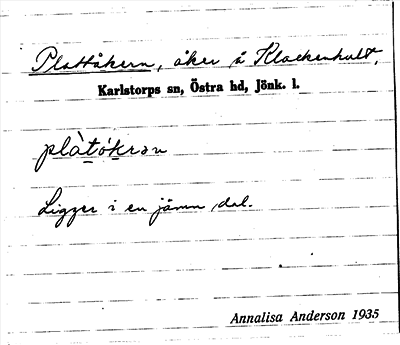 Plattåkern, åker å Klockenhult,
Karlstorps sn, Östra hd, Jönk. l.
plàtókrən
Ligger i en jämn dal.
Annalisa Anderson 1935